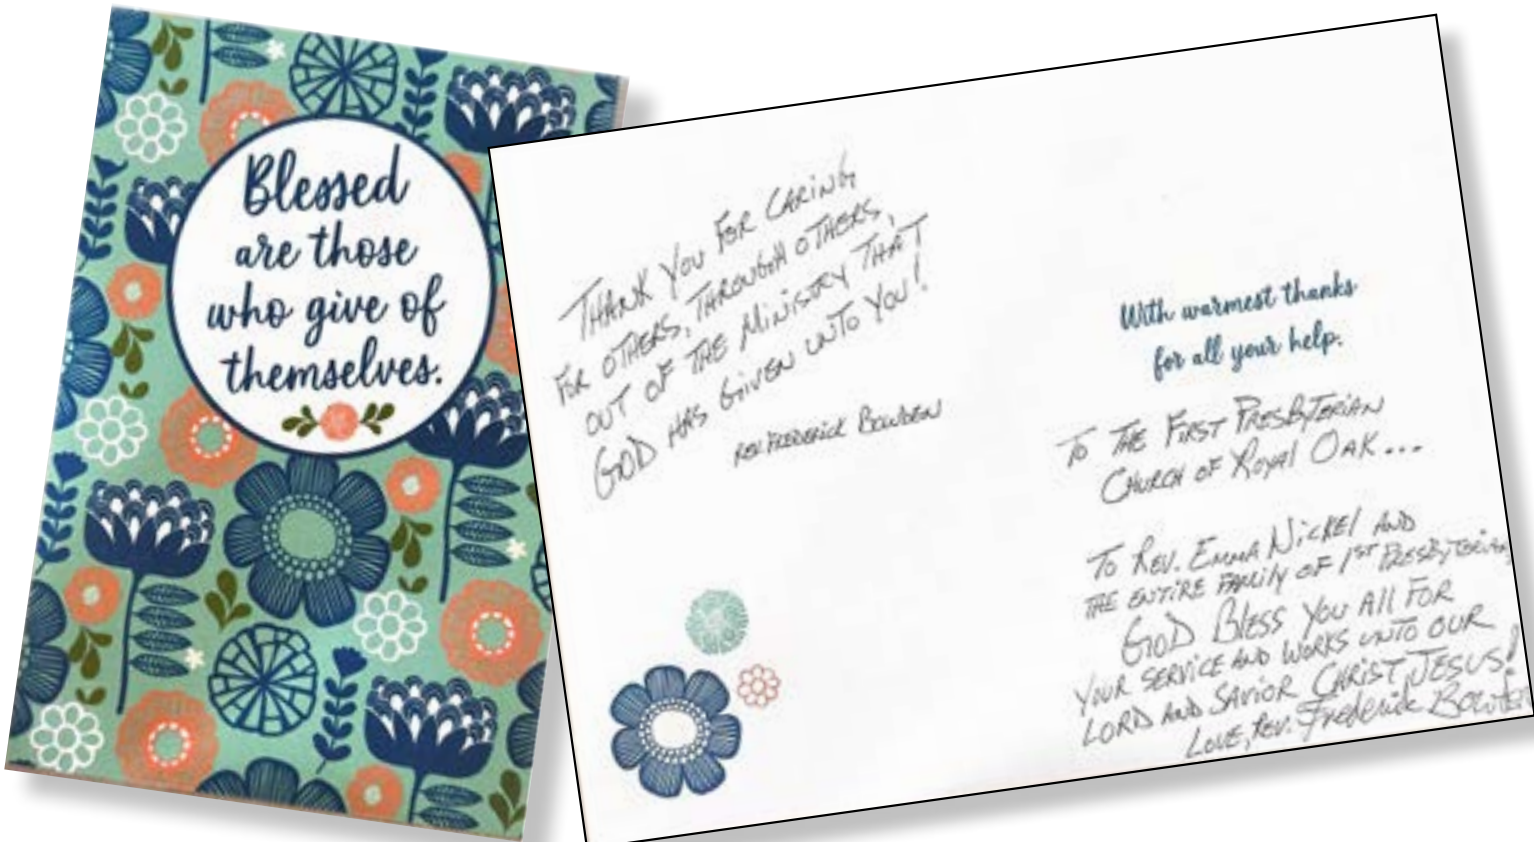 Blessed
are those
who give of
themselves.
THANK YOU FOR CARING
FOR OTHERS, THROUGH OTHERS,
OUT OF THE MINISTRY THAT
GOD HAS GIVEN UNTO YOU!
REV. FREDERICK BOWDEN
With warmest thanks
for all your help.
TO THE FIRST PRESBYTERIAN
CHURCH OF ROYAL OAK...
TO REV. EMMA NICKEL AND
THE ENTIRE FAMILY OF 1ST PRESBYTERIAN
GOD BLESS YOU ALL FOR
YOUR SERVICE AND WORKS UNTO OUR
LORD AND SAVIOR CHRIST JESUS!
LOVE, REV. Frederick Bowden